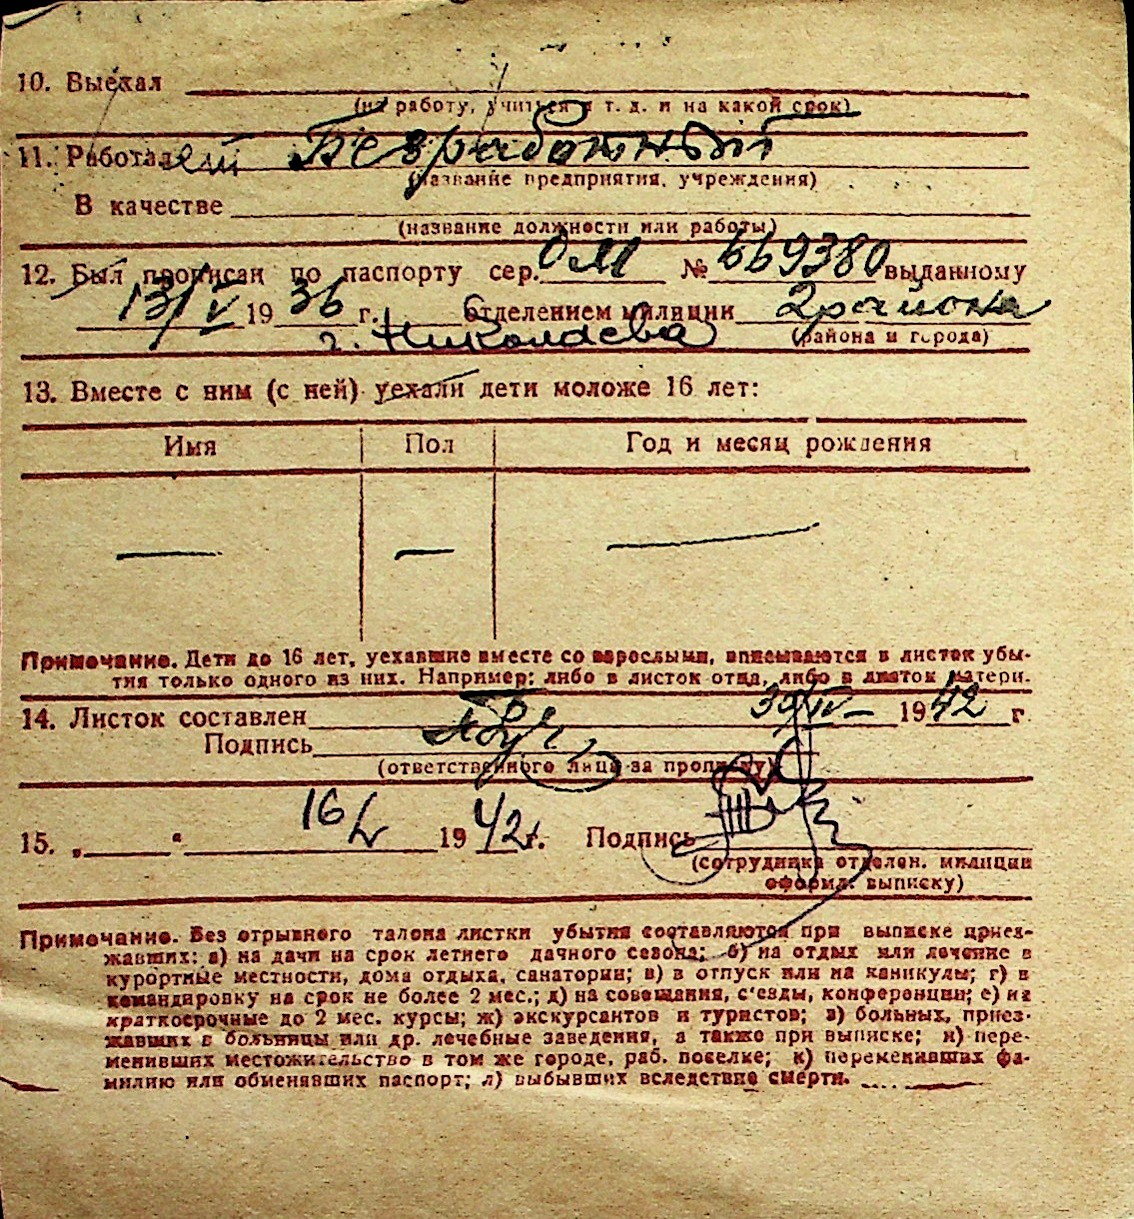 10. Выехал
(на работу, учиться и т. д. и на какой срок)
11. Работал Безработный
(название предприятия, учреждения)
В качестве
(название должности или работы)
12. Был прописан по паспорту сер. ОМ № 669380 выданному
13/V 1936 г. Отделением милиции 2 района
г. Николаева (района и города)
13. Вместе с ним (с ней) уехали дети моложе 16 лет:
Имя Пол Год и месяц рождения
— — —
Примечание. Дети до 16 лет, уехавшие вместе со взрослыми, вписываются в листок убы-
тия только одного из них. Например: либо в листок отца, либо в листок матери.
14. Листок составлен 30/IV— 1942 г.
Подпись
(ответственного лица за прописку)
15. „ “ 16/V 1942 г. Подпись
(сотрудника отделен. милиции
оформл. выписку)
Примечание. Без отрывного талона листки убытия составляются при выписке приез-
жавших: а) на дачи на срок летнего дачного сезона; б) на отдых или лечение в
курортные местности, дома отдыха, санатории; в) в отпуск или на каникулы; г) в
командировку на срок не более 2 мес.; д) на совещания, с'езды, конференции; е) на
краткосрочные до 2 мес. курсы; ж) экскурсантов и туристов; з) больных, приез-
жавших в больницы или др. лечебные заведения, а также при выписке; и) пере-
менивших местожительство в том же городе, раб. поселке; к) переменивших фа-
милию или обменявших паспорт; л) выбывших вследствие смерти.